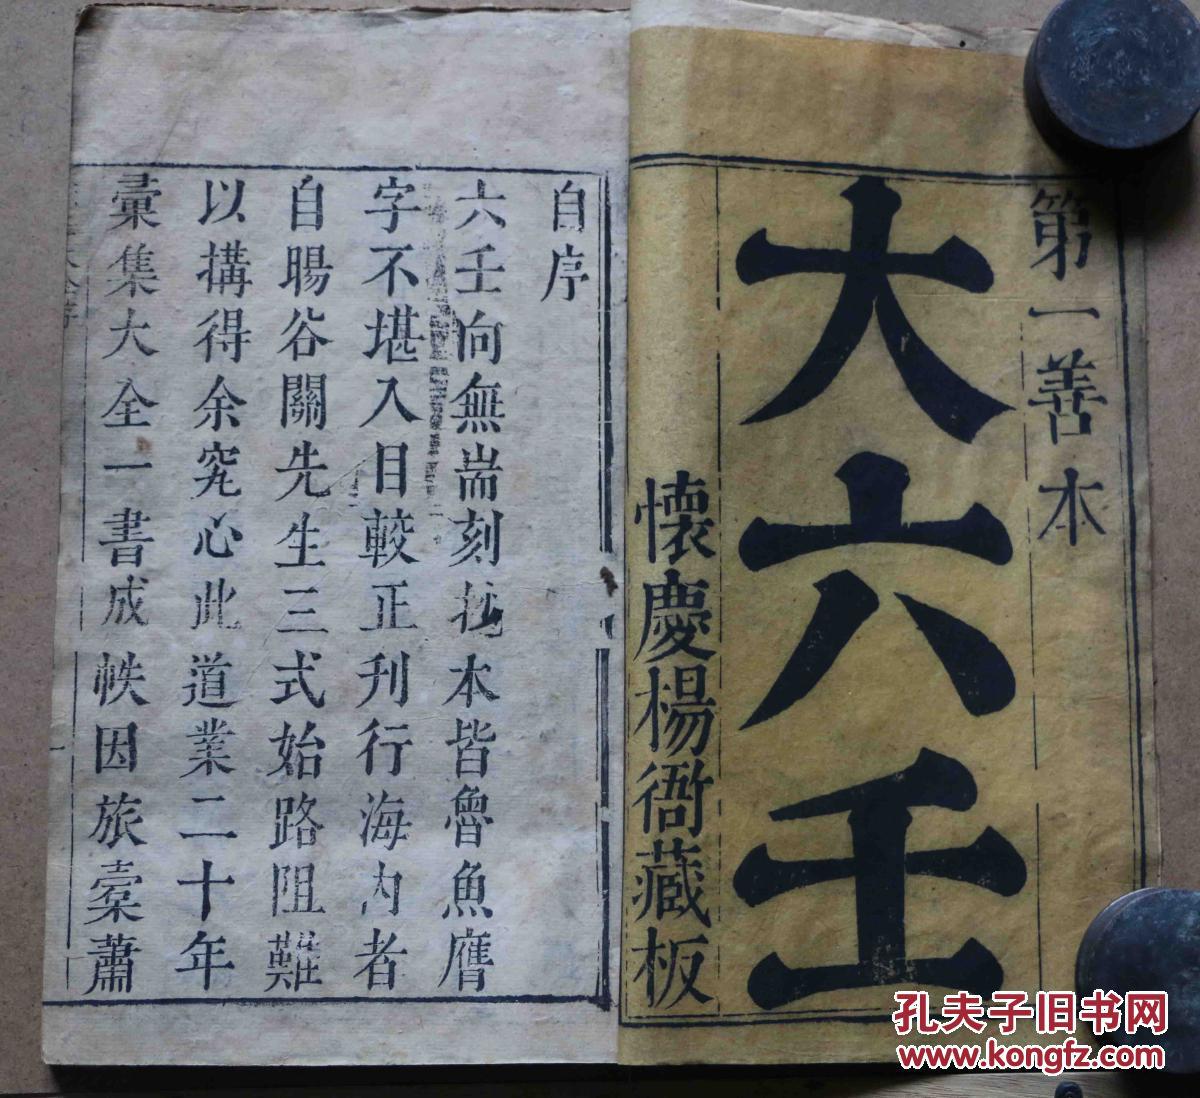 第一善本
大六壬
懷慶楊衙藏板
自序
六壬向無耑刻抄本皆魯魚膺
字不堪入目較正刊行海內者
自暘谷關先生三式始路阻難
以搆得余究心此道業二十年
彚集大全一書成帙因旅橐蕭
孔夫子旧书网
www.kongfz.com